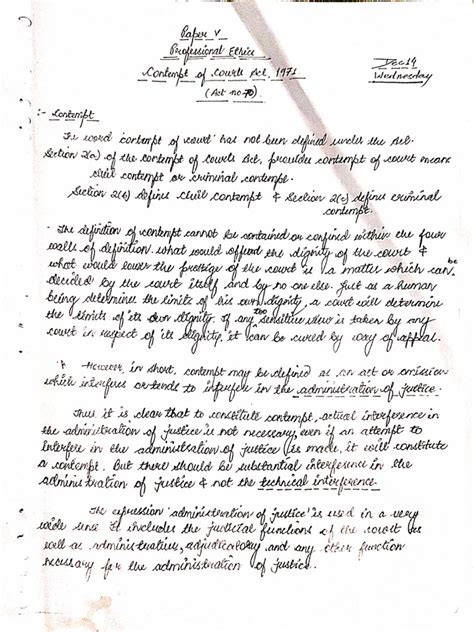 Paper V
Professional Ethics
Dec 14
Wednesday
Contempt of Courts Act, 1971
(Act no 70).
:- Contempt
The word contempt of court' has not been defined under the Act.
Section 2(a) of the contempt of courts Act, provides contempt of court means
civil contempt or criminal contempt.
Section 2(b) defines civil contempt & Section 2(c) defines criminal
contempt.
The definition of contempt cannot be contained or confined within the four
walls of definition. what would offend the dignity of the court &
what would lower the prestige of the court is a matter which can be
decided by the court itself and by no one else. Just as a human
being determine the limits of his own dignity, a court will determine
the limits of its own dignity. if any too sensitive view is taken by any
court in respect of its dignity, it can be cured by way of appeal.
However, in short, contempt may be defined as an act or omission
which interferes or tends to interfere in the administration of justice.
Thus it is clear that to constitute contempt, actual interference in
the administration of justice is not necessary, even if an attempt to
interfere in the administration of justice is made, it will constitute
a contempt. But there should be substantial interference in the
administration of justice & not the technical interference.
The expression 'administration of justice' is used in a very
wide sense. It includes the judicial functions of the court as
well as administrative, adjudicatory and any other function
necessary for the administration of justice.